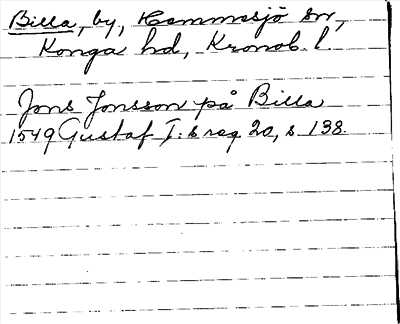 Billa, by, Hemmesjö sn,
Konga hd, Kronob. l.
Jons Jonsson på Billa
1549 Gustaf I:s reg 20, s 138.